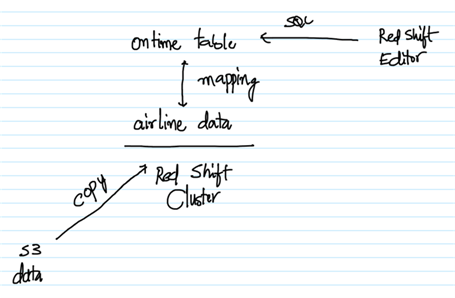 SQL
ontime table
Red Shift
Editor
mapping
airline data
Red Shift
Cluster
COPY
S3
data